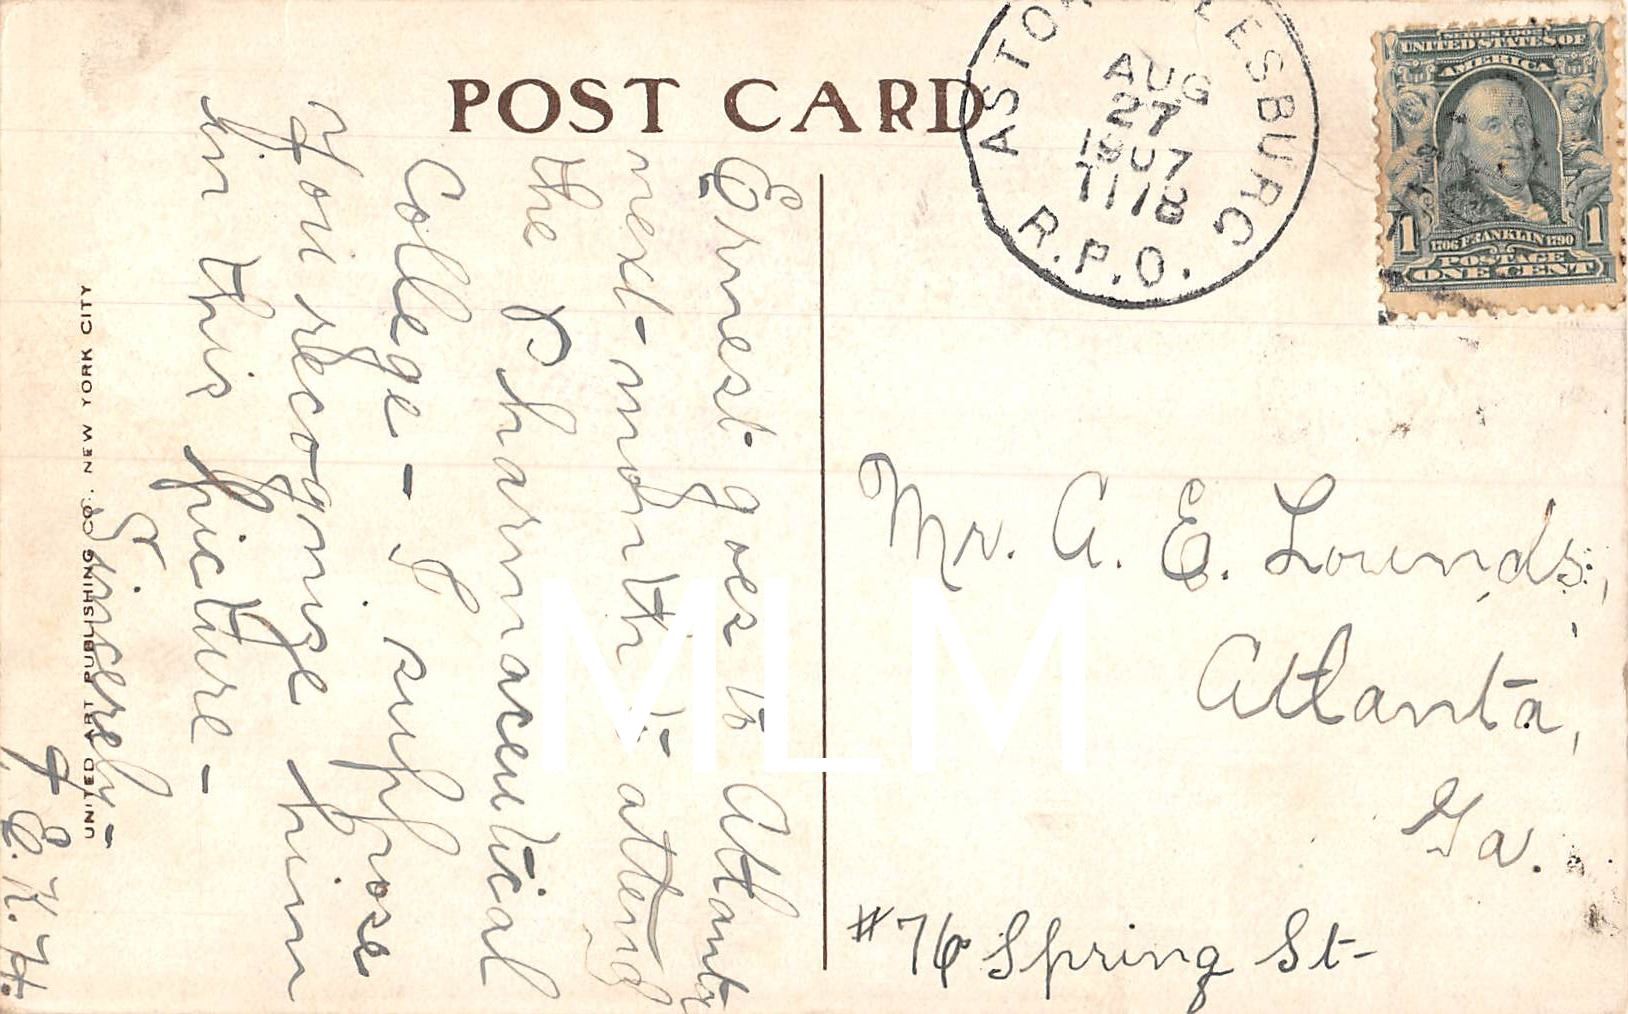 POST CARD
AUG
27
1907
R.P.O.
SERIES 1902
UNITED STATES OF
AMERICA
1 1
1706 FRANKLIN 1790
POSTAGE
ONE CENT
Ernest goes to Atlanta
next-month to attend
the Pharmaceutical
College - I suppose
You recognize him
in this picture -
Sincerely -
E. K. H.
UNITED ART PUBLISHING CO. NEW YORK CITY
Mr. A. E. Lounds,
Atlanta,
Ga.
#76 Spring St-
MLM